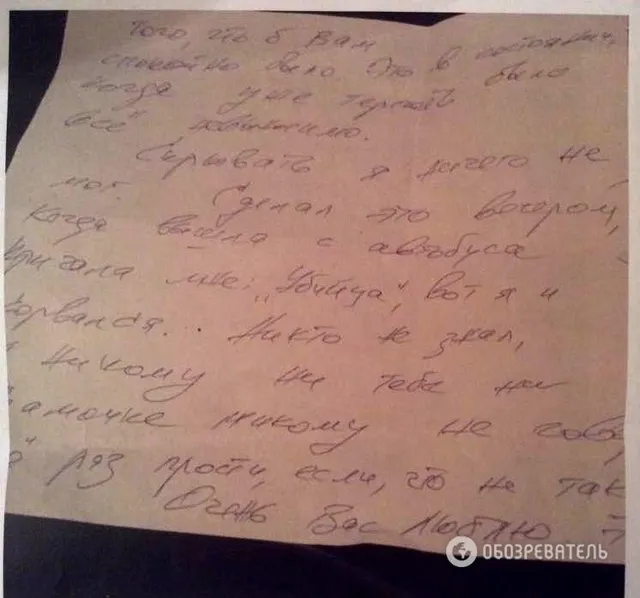 того, что б Вам
спокойно было Это в состоянии,
когда уже терпеть было
всё невыносимо.
Скрывать я ничего не
мог. Сделал это вечером,
когда вышла с автобуса
кричала мне: „Убийца", вот я и
сорвался... Никто не знал,
никому ни тебе ни
мамочке никому не гово
раз прости, если, что не так
Очень Вас люблю
ОБОЗРЕВАТЕЛЬ